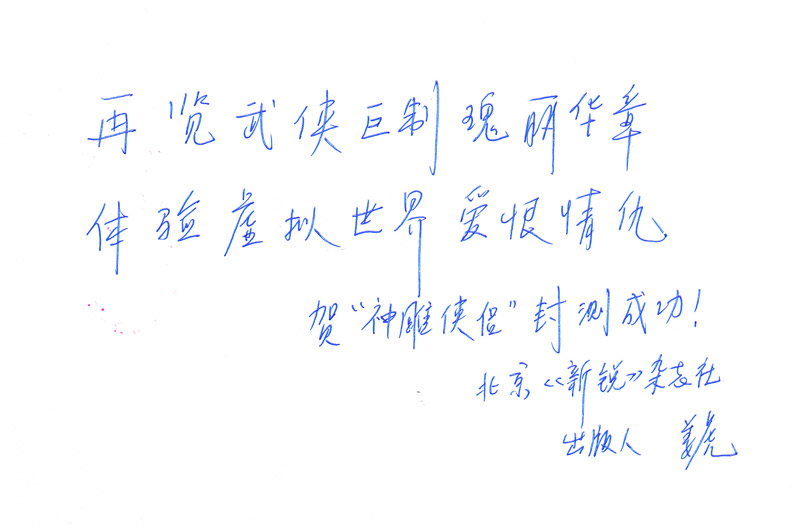 再览武侠巨制瑰丽华章
体验虚拟世界爱恨情仇
贺“神雕侠侣”封测成功！
北京《新锐》杂志社
出版人 姜虎